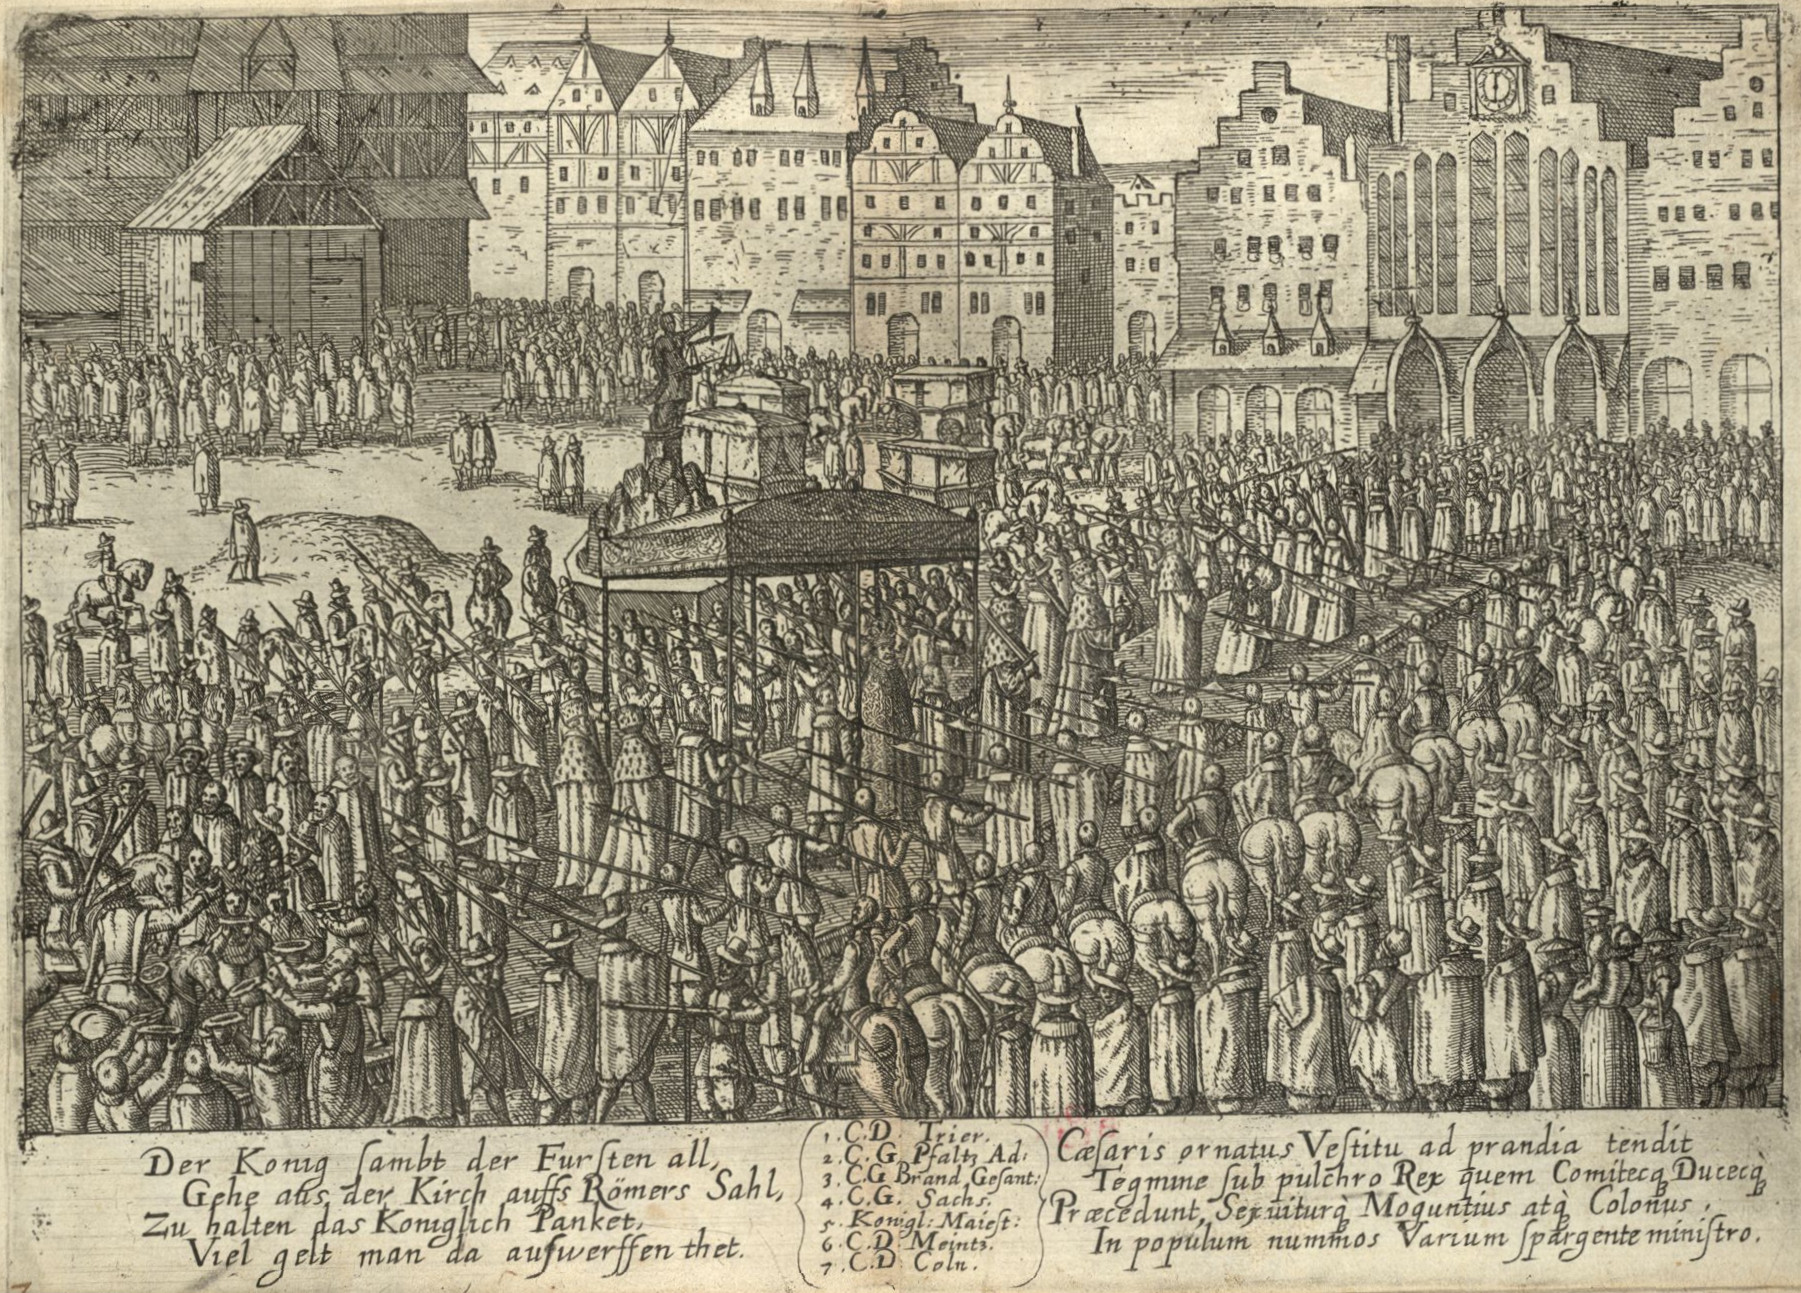 Der Konig sambt der Fursten all,
Gehe aus der Kirch auffs Römers Sahl,
Zu halten das Koniglich Panket,
Viel gelt man da aufwerffen thet.
1. C.D. Trier.
2. C.G. Pfaltz Ad:
3. C.G Brand Gesant:
4. C.G. Sachs.
5. Konigl: Maiest:
6. C.D Meintz.
7. C.D Coln.
Cæsaris ornatus Vestitu ad prandia tendit
Tegmine sub pulchro Rex quem Comitecq̨ Ducecq̨
Præcedunt, Sequiturq̨ Moguntius atq̨ Colonus,
In populum nummos Varium spargente ministro.